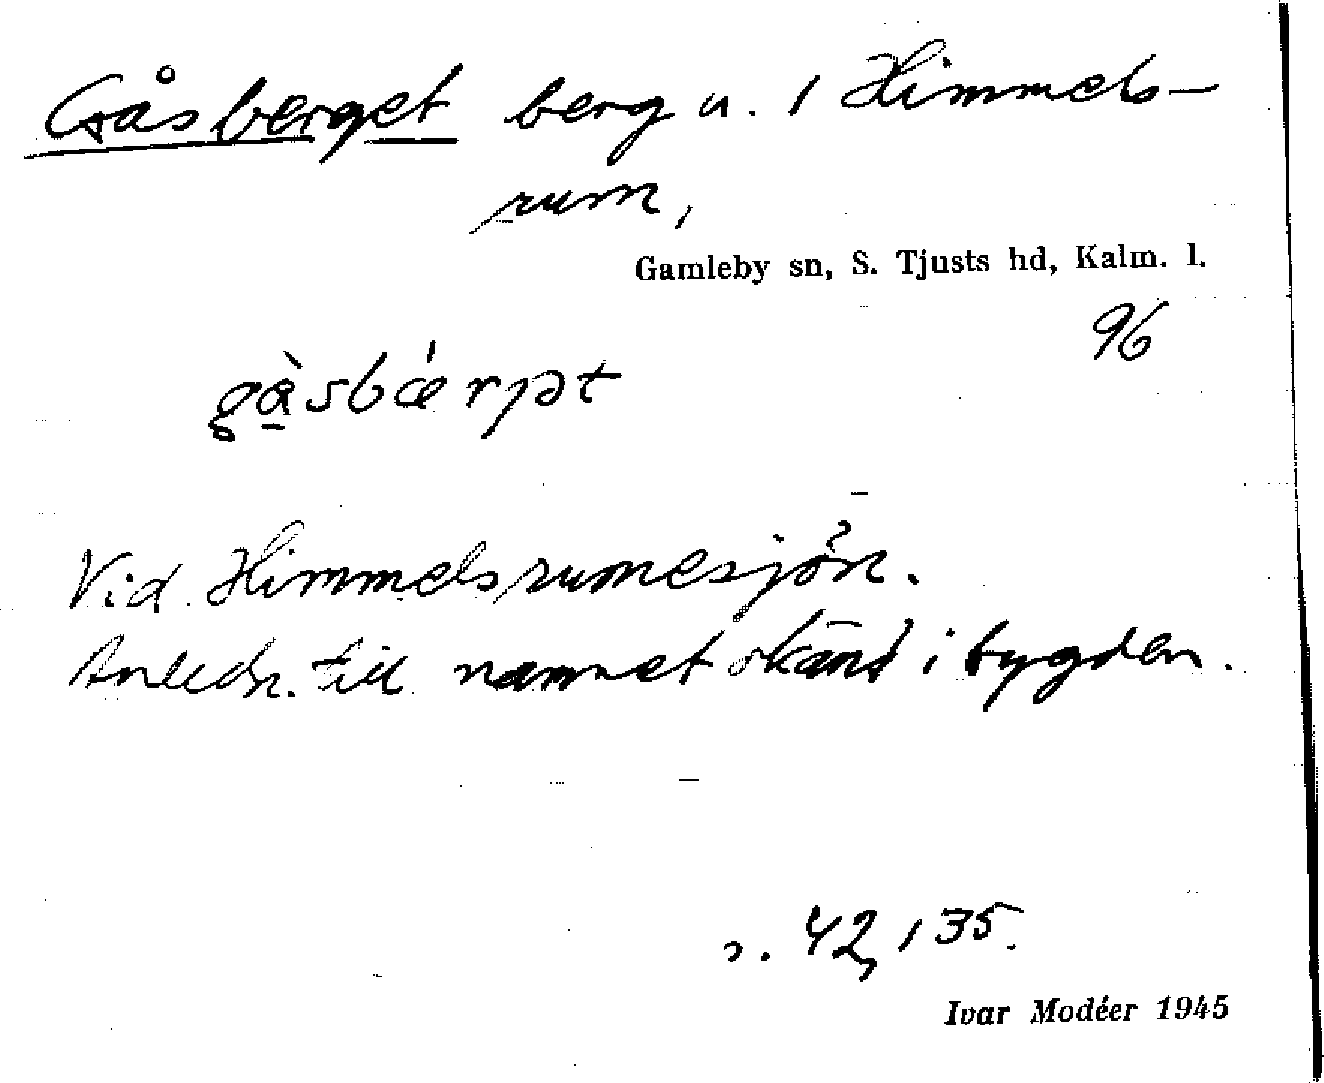 Gåsberget berg u. 1 Himmels-
rum,
Gamleby sn, S. Tjusts hd, Kalm. l.
96
gàsbǽrjət
Vid Himmelsrumesjön.
Anledn. till namnet okänd i bygden.
s. 42, 135.
Ivar Modéer 1945